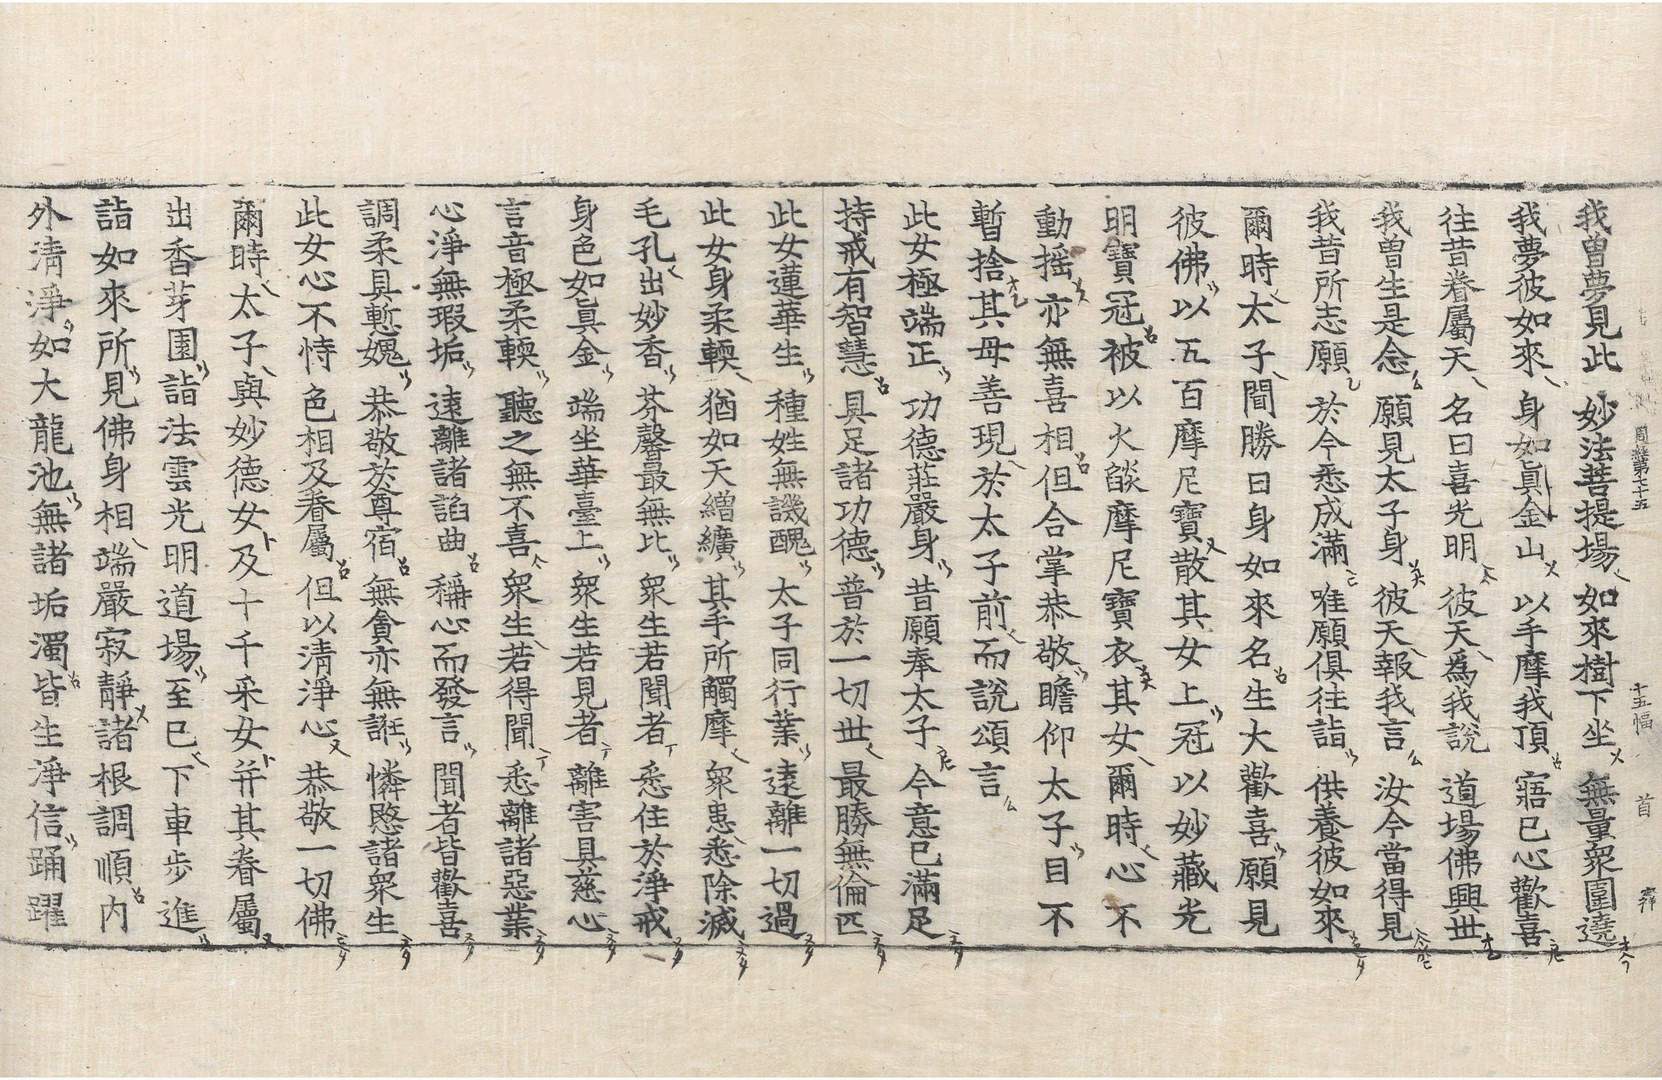 我曾夢見此 妙法菩提場 如來樹下坐 無量衆圍遶
我夢彼如來 身如眞金山 以手摩我頂 寤已心歡喜
往昔眷屬天 名曰喜光明 彼天爲我說 道場佛興世
我曾生是念 願見太子身 彼天報我言 汝今當得見
我昔所志願 於今悉成滿 唯願俱往詣 供養彼如來
爾時太子聞勝日身如來名生大歡喜願見
彼佛以五百摩尼寶散其女上冠以妙藏光
明寶冠被以火燄摩尼寶衣其女爾時心不
動搖亦無喜相但合掌恭敬瞻仰太子目不
暫捨其母善現於太子前而說頌言
此女極端正 功德莊嚴身 昔願奉太子 今意已滿足
持戒有智慧 具足諸功德 普於一切世 最勝無倫匹
此女蓮華生 種姓無譏醜 太子同行業 遠離一切過
此女身柔輭 猶如天繒纊 其手所觸摩 衆患悉除滅
毛孔出妙香 芬馨最無比 衆生若聞者 悉住於淨戒
身色如眞金 端坐華臺上 衆生若見者 離害具慈心
言音極柔輭 聽之無不喜 衆生若得聞 悉離諸惡業
心淨無瑕垢 遠離諸諂曲 稱心而發言 聞者皆歡喜
調柔具慙媿 恭敬於尊宿 無貪亦無誑 憐愍諸衆生
此女心不恃 色相及眷屬 但以清淨心 恭敬一切佛
爾時太子與妙德女及十千采女幷其眷屬
出香芽園詣法雲光明道場至已下車步進
詣如來所見佛身相端嚴寂靜諸根調順內
外清淨如大龍池無諸垢濁皆生淨信踊躍